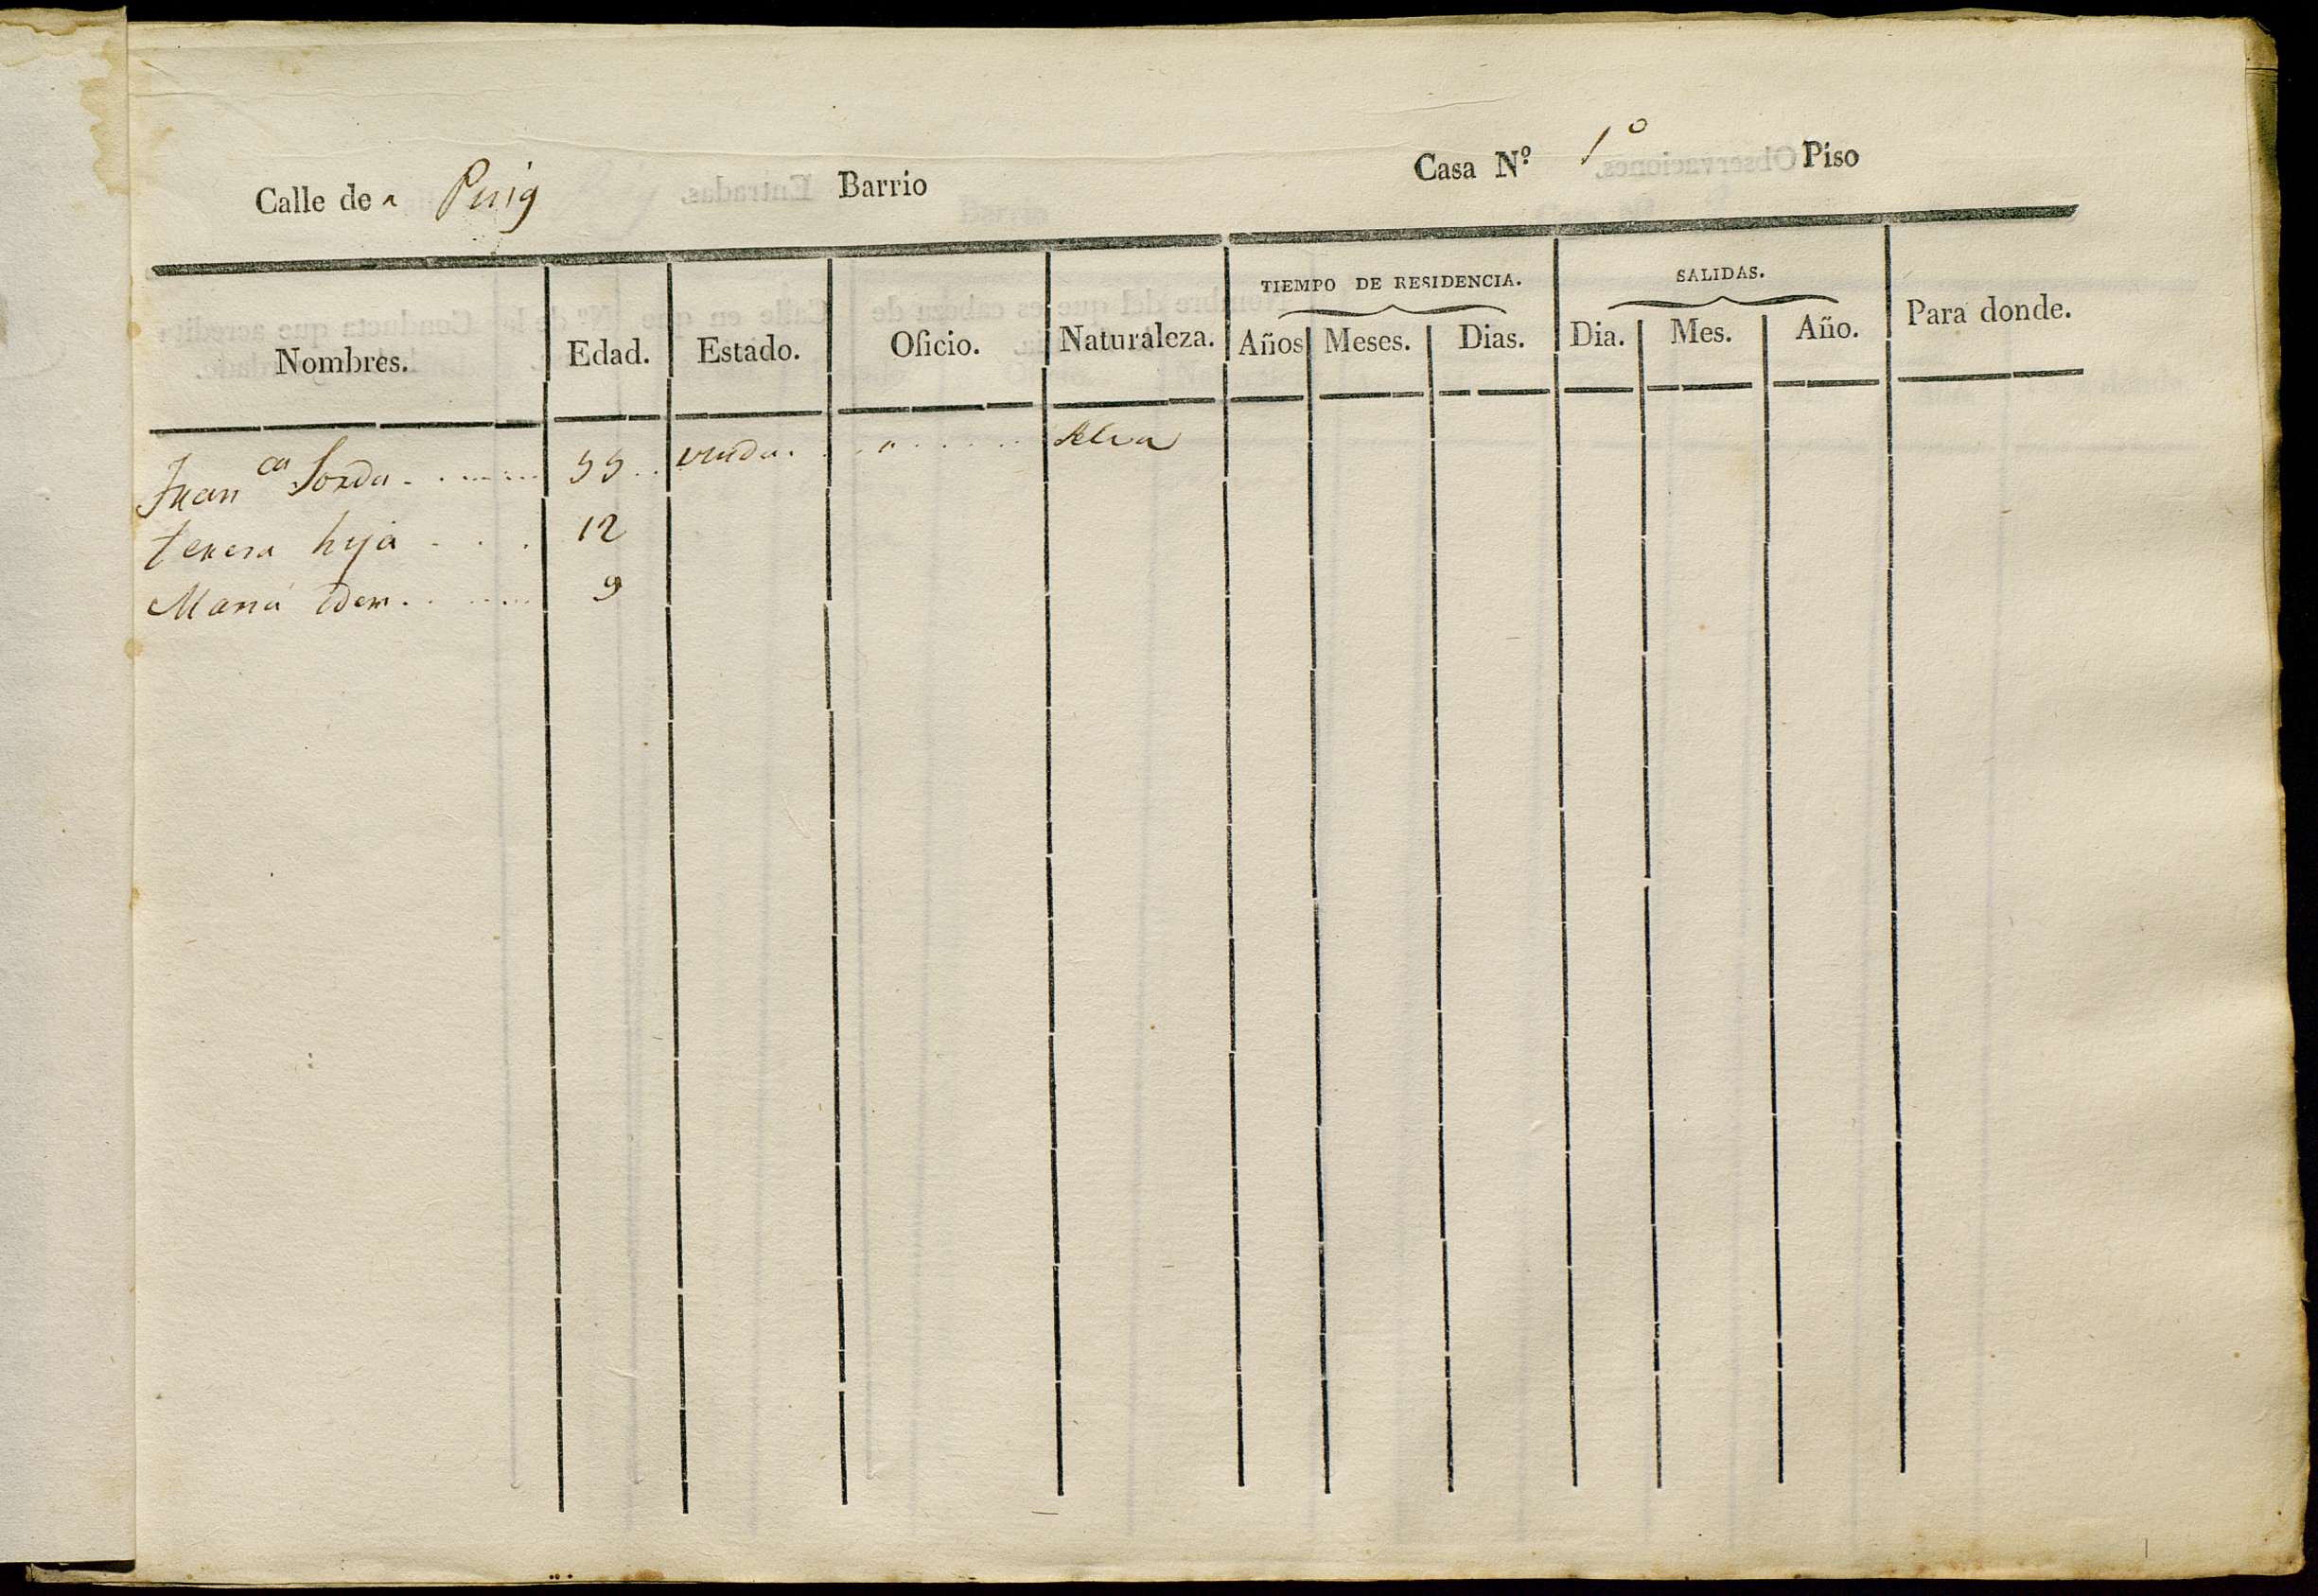 Calle de Puig Barrio Casa Nº. 1º Piso
TIEMPO DE RESIDENCIA. SALIDAS.
Nombres. Edad. Estado. Oficio. Naturaleza. Años Meses. Dias. Dia. Mes. Año. Para donde.
Juan ca Sorda 55 viuda. " Selva
teresa hija 12
Maria idem 9